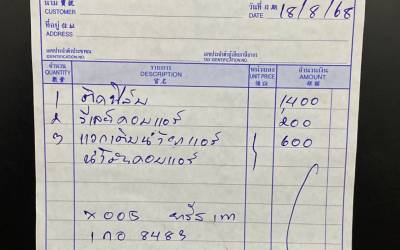 นาม 寶號
CUSTOMER
วันที่ 日期
DATE 18/8/68
ที่อยู่ 住址
ADDRESS
เลขประจำตัวประชาชน
IDENTIFICATION NO.
เลขประจำตัวผู้เสียภาษีอากร
TAX IDENTIFICATION NO.
จำนวน รายการ หน่วยละ จำนวนเงิน
QUANTITY DESCRIPTION UNIT PRICE AMOUNT
數量 貨名 價目 銀額
1 ติดฟิล์ม 1,400
2 รีเลย์คอมแอร์ 200
3 แวคเติมน้ำยาแอร์ 600
น้ำมันคอมแอร์
1 กอ 8483